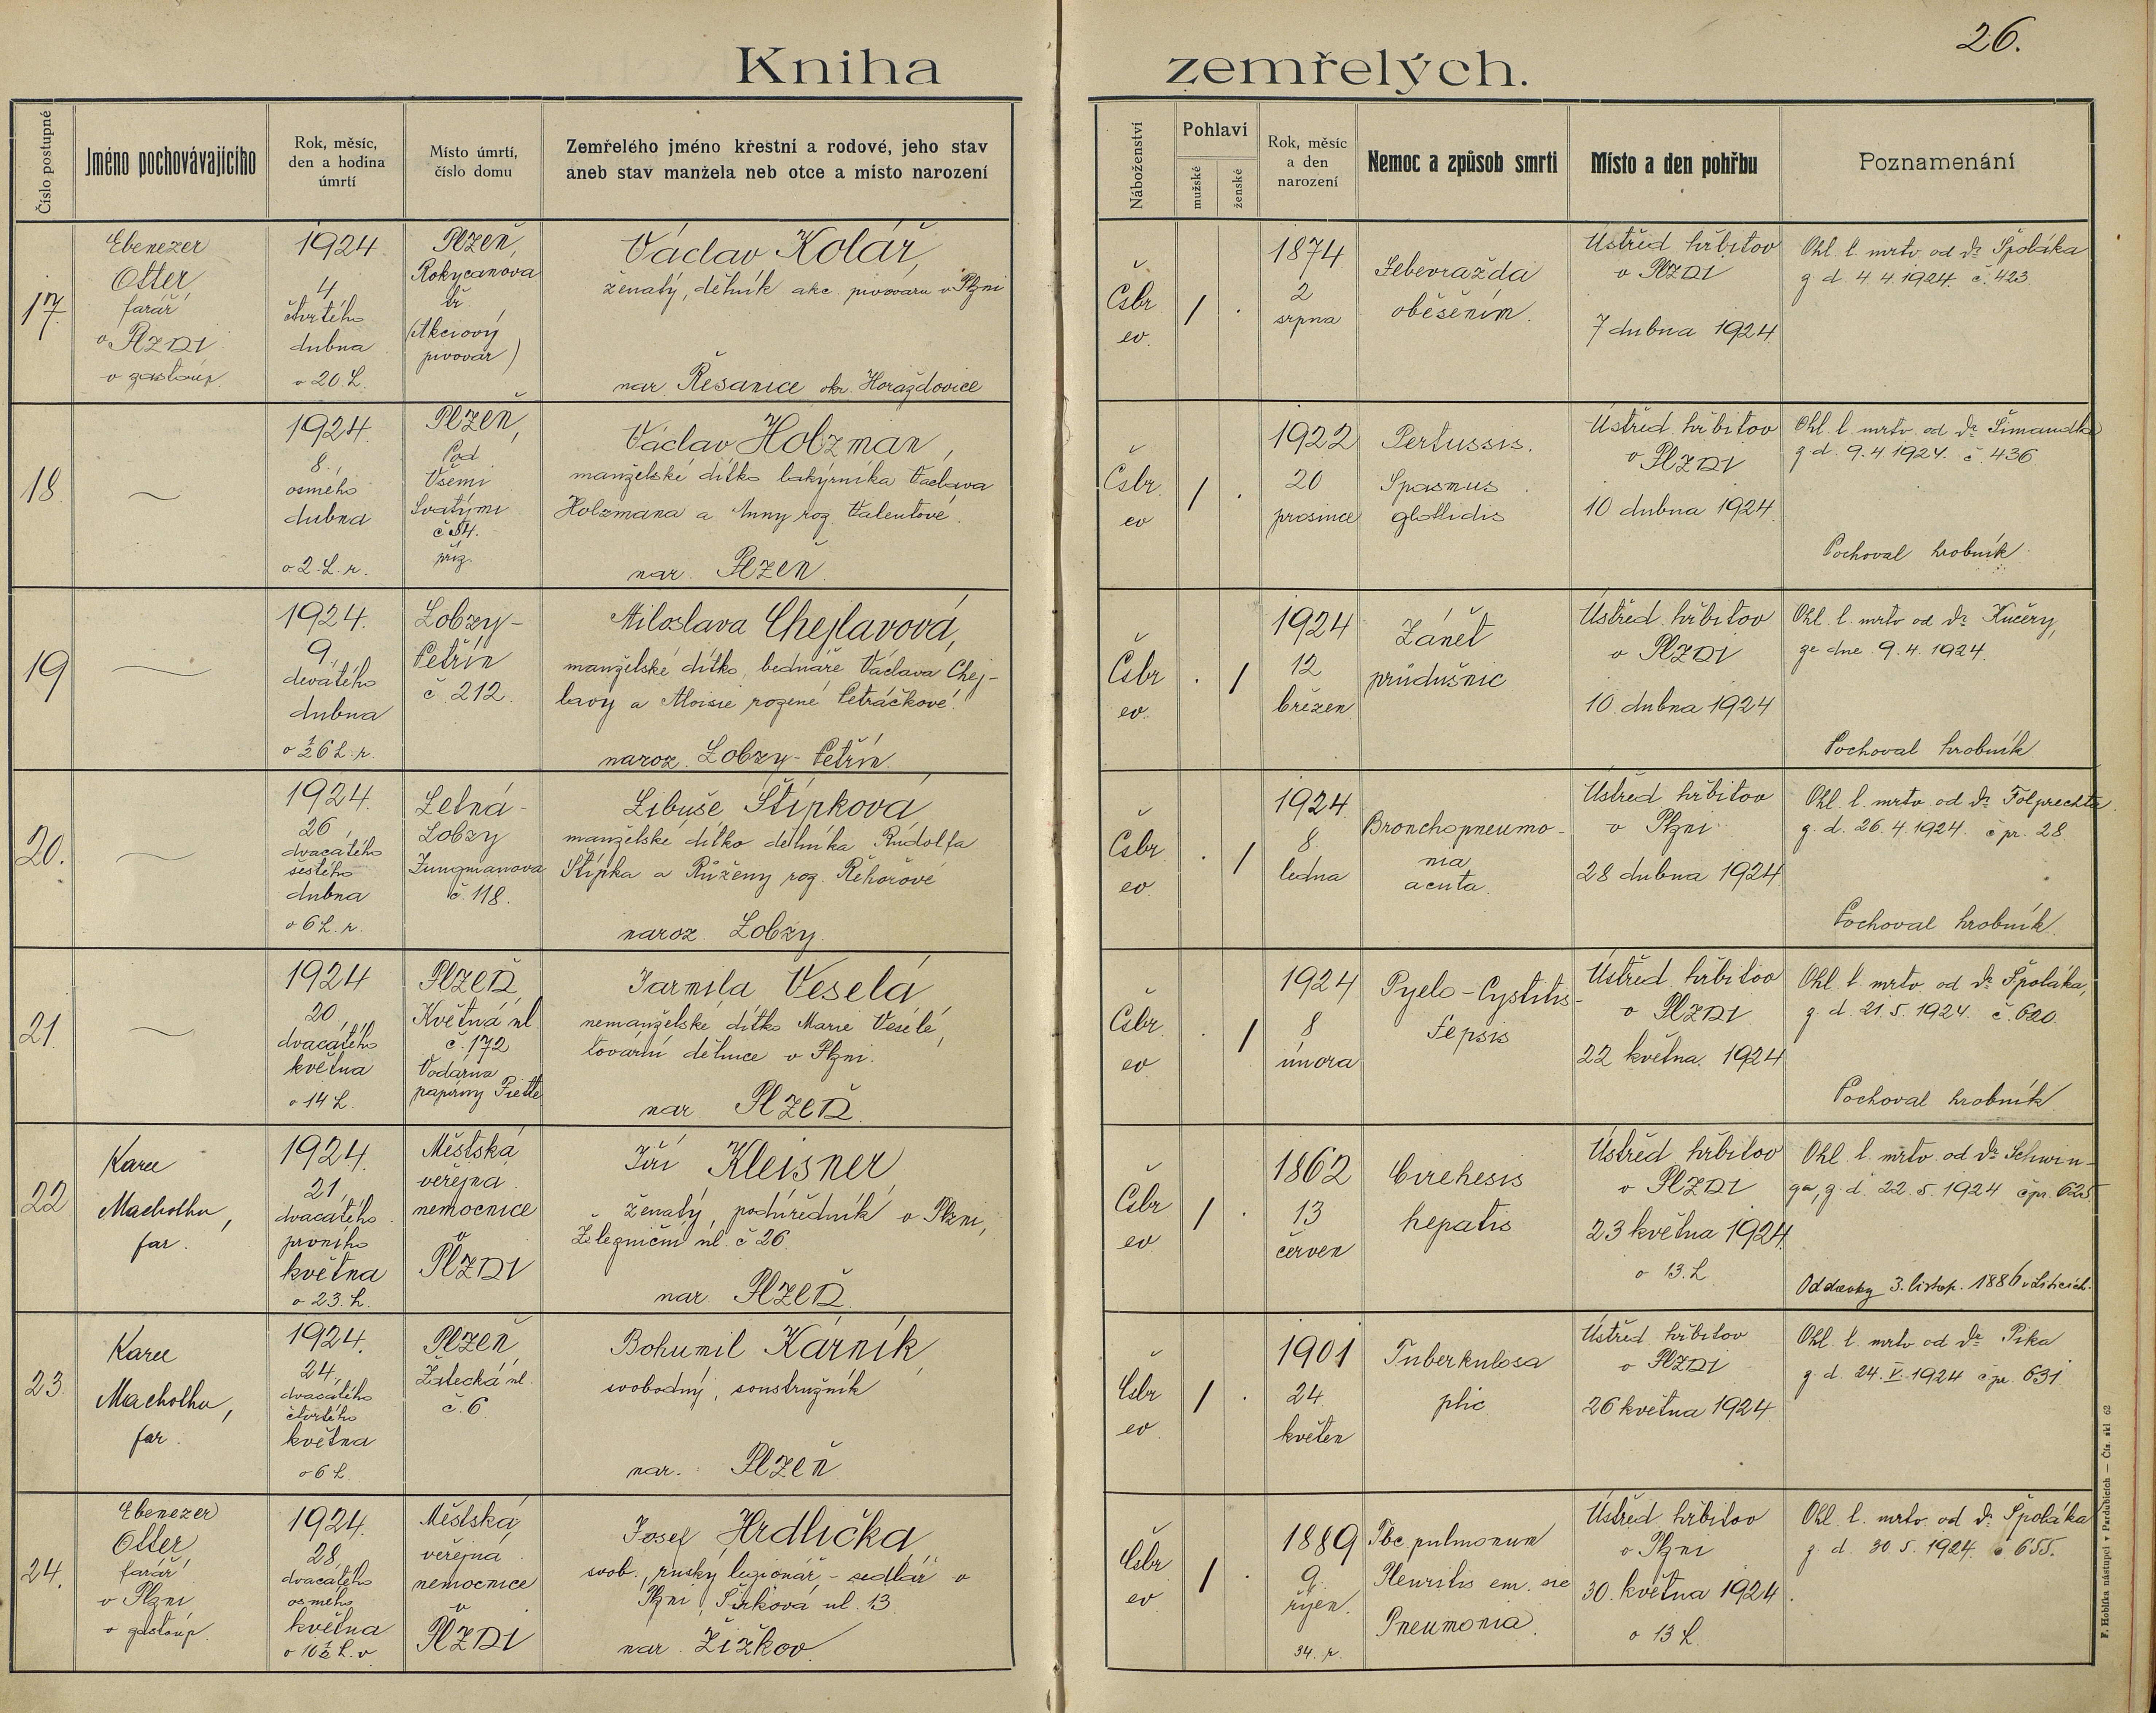 26.
Kniha zemřelých.
Číslo postupné
Jméno pochovávajícího
Rok, měsíc,
den a hodina
úmrtí
Místo úmrtí,
číslo domu
Zemřelého jméno křestní a rodové, jeho stav
aneb stav manžela neb otce a místo narození
Náboženství
Pohlaví
mužské
ženské
Rok, měsíc
a den
narození
Nemoc a způsob smrti
Místo a den pohřbu
Poznamenání
17.
Ebenezer
Otter
farář
v Plzni
v zastoup.
1924
4
čtvrtého
dubna
o 20. h.
Plzeň,
Rokycanova
tř.
(Akciový
pivovar)
Václav Kolář,
ženatý, dělník akc. pivovaru v Plzni
nar. Řesanice okr. Horažďovice
Čsbr
ev.
/ .
1874
2
srpna
Sebevražda
oběšením.
Ústřed. hřbitov
v Plzni
7 dubna 1924
Ohl. l. mrtv. od Dr Špoláka
z d. 4. 4. 1924. č. 423
18.
1924.
8.
osmého
dubna
o 2. h. r.
Plzeň,
Pod
Všemi
Svatými
č 54.
příz.
Václav Holzman,
manželské dítko lakýrníka Václava
Holzmana a Anny roz. Valentové.
nar. Plzeň.
Čsbr.
ev
/ .
1922
20
prosince
Pertussis.
Spasmus
glottidis
Ústřed. hřbitov
v Plzni
10 dubna 1924.
Ohl. l. mrtv. od Dr Šimandla
z d. 9. 4 1924. č. 436
Pochoval hrobník
19
1924.
9.
devátého
dubna
o ½6 h. r.
Lobzy-
Petřín
č. 212.
Miloslava Chejlavová,
manželské dítko bednáře Václava Chej-
lavy a Aloisie rozené Petráčkové.
naroz. Lobzy-Petřín.
Čsbr
ev.
. /
1924
12
březen
Zánět
průdušnic
Ústřed. hřbitov
v Plzni
10. dubna 1924
Ohl. l. mrtv od Dr Kučery,
ze dne 9. 4. 1924.
Pochoval hrobník.
20.
1924.
26,
dvacátého
šestého
dubna
o 6 h. r.
Letná-
Lobzy
Jungmanova
č. 118.
Libuše Štípková
manželské dítko dělníka Rudolfa
Štípka a Růženy roz. Řehořové
naroz. Lobzy.
Čsbr
ev.
. /
1924.
8.
ledna
Bronchopneumo-
nia
acuta.
Ústřed hřbitov
v Plzni
28 dubna 1924.
Ohl. l. mrtv. od Dr Folprechta.
z. d. 26. 4. 1924. č pr. 28.
Pochoval hrobník.
21.
1924
20.
dvacátého
května
o 14 h.
Plzeň
Květná ul.
č. 172
Vodárna
papírny Piette
Jarmila Veselá
nemanželské dítko Marie Veselé,
tovární dělnice v Plzni.
nar Plzeň.
Čsbr
ev
. /
1924
8
února
Pyelo-Cystitis-
Sepsis
Ústřed. hřbitov
v Plzni
22 května. 1924
Ohl. l. mrtv. od Dr Špoláka,
z. d. 21. 5. 1924. č. 620.
Pochoval hrobník.
22
Karel
Machotka,
far.
1924.
21.
dvacátého
prvního
května
o 23. h.
Městská
veřejná
nemocnice
v
Plzni
Jiří Kleisner,
ženatý, podúředník v Plzni,
Železniční ul. č 26.
nar. Plzeň.
Čsbr
ev
/ .
1862
13
červen
Cirehesis
hepatis
Ústřed hřbitov
v Plzni
23 května 1924.
o 13. h.
Ohl. l. mrtv. od Dr Schwin-
ga, z. d. 22. 5. 1924 č pr. 625
Oddavky 3. listop. 1886 v Liticích.
23.
Karel
Machotka,
far.
1924.
24,
dvacátého
čtvrtého
května
o 6 h.
Plzeň,
Žatecká ul.
č. 6
Bohumil Kárník,
svobodný, soustružník
nar. Plzeň
Čsbr
ev.
/ .
1901
24.
květen
Tuberkulosa
plic
Ústřed. hřbitov
v Plzni
26 května 1924.
Ohl. l. mrtv od Dr Píka
z. d. 24. V. 1924 č pr. 631
24.
Ebenezer
Otter
farář
v Plzni
v zastoup.
1924.
28.
dvacátého
osmého
května
o 10½ h. v
Městská
veřejná
nemocnice
v
Plzni
Josef Hrdlička
svob., ruský legionář - sedlář v
Plzni, Šírková ul. 13.
nar. Žižkov.
Čsbr
ev.
/ .
1889
9.
říjen.
34. r.
Tbc pulmonum
Pleuritis em. sie
Pneumonia.
Ústřed. hřbitov
v Plzni
30. května 1924.
o 13 h.
Ohl. l. mrtv. od Dr Špoláka
z. d. 30 5. 1924. č 655.
F. Hoblíka nástupci v Pardubicích — Čís. skl. 62